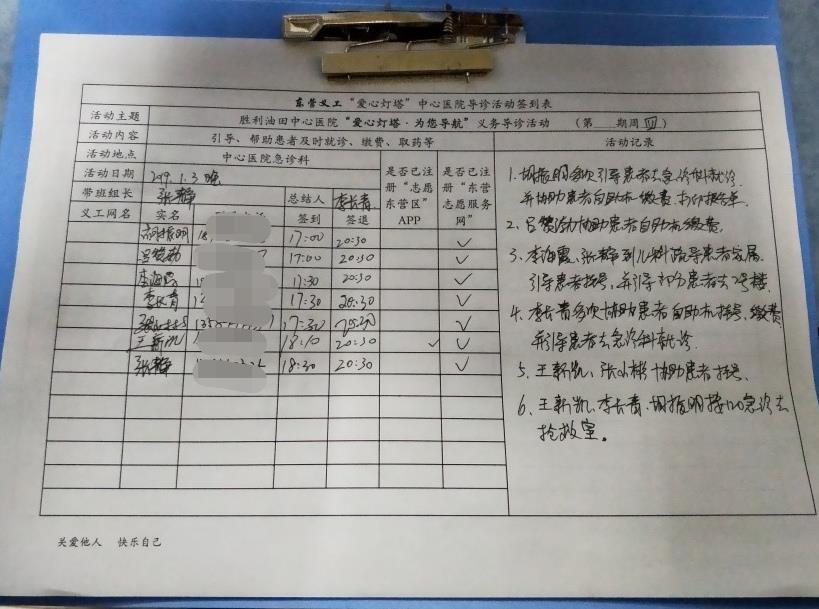 东营义工“爱心灯塔”中心医院导诊活动签到表
活动主题 胜利油田中心医院“爱心灯塔·为您导航”义务导诊活动 (第 期周四)
活动内容 引导、帮助患者及时就诊、缴费、取药等 活动记录
活动地点 中心医院急诊科 是否已注册“志愿东营区”APP 是否已注册“东营志愿服务网”
活动日期 1.3 晚
带班组长 张静 总结人 李长青
义工网名 实名 签到 签退
胡振明 17:00 20:30 ✓
17:00 20:30 ✓
李海霞 17:30 20:30 ✓
李长青 17:30 20:30 ✓
17:30 20:30 ✓
王新凯 18:10 20:30 ✓ ✓
张静 18:30 20:30 ✓
1、胡振明多次引导患者去急诊科就诊
并协助患者自助机缴费、打印报告单.
2、协助患者自助机缴费.
3、李海霞、张静到儿科疏导患者家属
引导患者挂号,并引导部分患者去2号楼.
4、李长青多次协助患者自助机挂号、缴费
并引导患者去急诊科就诊.
5、王新凯、张小彬协助患者挂号、
6、王新凯、李长青、胡振明接120急诊去
抢救室。
关爱他人 快乐自己